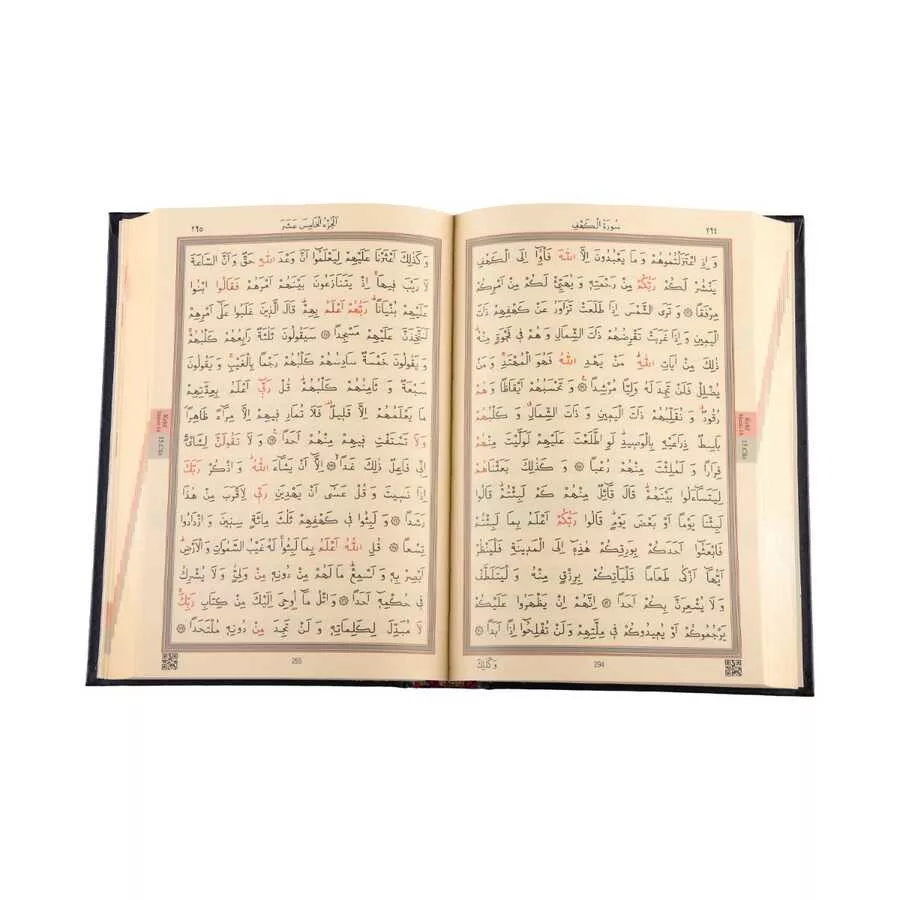 ٢٩٤ سُورَةُ الْكَهْفِ
وَ اِذِ اعْتَزَلْتُمُوهُمْ وَ مَا يَعْبُدُونَ اِلَّا اللّٰهَ فَأْوُٓا اِلَى الْكَهْفِ
يَنْشُرْ لَكُمْ رَبُّكُمْ مِنْ رَحْمَتِهٖ وَ يُهَيِّئْ لَكُمْ مِنْ اَمْرِكُمْ
مِرْفَقًا ۞ وَ تَرَى الشَّمْسَ اِذَا طَلَعَتْ تَزَاوَرُ عَنْ كَهْفِهِمْ ذَاتَ
الْيَمٖينِ وَ اِذَا غَرَبَتْ تَقْرِضُهُمْ ذَاتَ الشِّمَالِ وَ هُمْ فٖى فَجْوَةٍ مِنْهُؕ
ذٰلِكَ مِنْ اٰيَاتِ اللّٰهِؕ مَنْ يَهْدِ اللّٰهُ فَهُوَ الْمُهْتَدِۚ وَ مَنْ
يُضْلِلْ فَلَنْ تَجِدَ لَهُ وَلِيًّا مُرْشِدًا ۞ وَ تَحْسَبُهُمْ اَيْقَاظًا وَ هُمْ
رُقُودٌۗ وَ نُقَلِّبُهُمْ ذَاتَ الْيَمٖينِ وَ ذَاتَ الشِّمَالِۗ وَ كَلْبُهُمْ
بَاسِطٌ ذِرَاعَيْهِ بِالْوَصٖيدِؕ لَوِ اطَّلَعْتَ عَلَيْهِمْ لَوَلَّيْتَ مِنْهُمْ
فِرَارًا وَ لَمُلِئْتَ مِنْهُمْ رُعْبًا ۞ وَ كَذٰلِكَ بَعَثْنَاهُمْ
لِيَتَسَٓاءَلُوا بَيْنَهُمْؕ قَالَ قَٓائِلٌ مِنْهُمْ كَمْ لَبِثْتُمْؕ قَالُوا
لَبِثْنَا يَوْمًا اَوْ بَعْضَ يَوْمٍؕ قَالُوا رَبُّكُمْ اَعْلَمُ بِمَا لَبِثْتُمْ
فَابْعَثُٓوا اَحَدَكُمْ بِوَرِقِكُمْ هٰذِهٖٓ اِلَى الْمَدٖينَةِ فَلْيَنْظُرْ
اَيُّهَٓا اَزْكٰى طَعَامًا فَلْيَأْتِكُمْ بِرِزْقٍ مِنْهُ وَ لْيَتَلَطَّفْ
وَ لَا يُشْعِرَنَّ بِكُمْ اَحَدًا ۞ اِنَّهُمْ اِنْ يَظْهَرُوا عَلَيْكُمْ
يَرْجُمُوكُمْ اَوْ يُعٖيدُوكُمْ فٖى مِلَّتِهِمْ وَ لَنْ تُفْلِحُٓوا اِذًا اَبَدًا ۞
294 وَ كَذٰلِكَ
الْجُزْءُ الْخَامِسَ عَشَرَ ٢٩٥
وَ كَذٰلِكَ اَعْثَرْنَا عَلَيْهِمْ لِيَعْلَمُٓوا اَنَّ وَعْدَ اللّٰهِ حَقٌّ وَ اَنَّ السَّاعَةَ
لَا رَيْبَ فٖيهَاۚ اِذْ يَتَنَازَعُونَ بَيْنَهُمْ اَمْرَهُمْ فَقَالُوا ابْنُوا
عَلَيْهِمْ بُنْيَانًاؕ رَبُّهُمْ اَعْلَمُ بِهِمْؕ قَالَ الَّذٖينَ غَلَبُوا عَلٰٓى اَمْرِهِمْ
لَنَتَّخِذَنَّ عَلَيْهِمْ مَسْجِدًا ۞ سَيَقُولُونَ ثَلٰثَةٌ رَابِعُهُمْ كَلْبُهُمْۚ
وَ يَقُولُونَ خَمْسَةٌ سَادِسُهُمْ كَلْبُهُمْ رَجْمًا بِالْغَيْبِۚ وَ يَقُولُونَ
سَبْعَةٌ وَ ثَامِنُهُمْ كَلْبُهُمْؕ قُلْ رَبّٖٓى اَعْلَمُ بِعِدَّتِهِمْ
مَا يَعْلَمُهُمْ اِلَّا قَلٖيلٌࣞ فَلَا تُمَارِ فٖيهِمْ اِلَّا مِرَٓاءً ظَاهِرًا
وَ لَا تَسْتَفْتِ فٖيهِمْ مِنْهُمْ اَحَدًا ۞ وَ لَا تَقُولَنَّ لِشَاۡىْءٍ
اِنّٖى فَاعِلٌ ذٰلِكَ غَدًا ۞ اِلَّٓا اَنْ يَشَٓاءَ اللّٰهُؗ وَ اذْكُرْ رَبَّكَ
اِذَا نَسٖيتَ وَ قُلْ عَسٰٓى اَنْ يَهْدِيَنِ رَبّٖى لِاَقْرَبَ مِنْ هٰذَا
رَشَدًا ۞ وَ لَبِثُوا فٖى كَهْفِهِمْ ثَلٰثَ مِائَةٍ سِنٖينَ وَ ازْدَادُوا
تِسْعًا ۞ قُلِ اللّٰهُ اَعْلَمُ بِمَا لَبِثُواۚ لَهُ غَيْبُ السَّمٰوَاتِ وَ الْاَرْضِؕ
اَبْصِرْ بِهٖ وَ اَسْمِعْؕ مَا لَهُمْ مِنْ دُونِهٖ مِنْ وَلِىٍّؗ وَ لَا يُشْرِكُ
فٖى حُكْمِهٖٓ اَحَدًا ۞ وَ اتْلُ مَٓا اُو۫حِىَ اِلَيْكَ مِنْ كِتَابِ رَبِّكَۚ
لَا مُبَدِّلَ لِكَلِمَاتِهٖࣞ وَ لَنْ تَجِدَ مِنْ دُونِهٖ مُلْتَحَدًا ۞
295
Kehf
15.Cüz
Kehf
15.Cüz